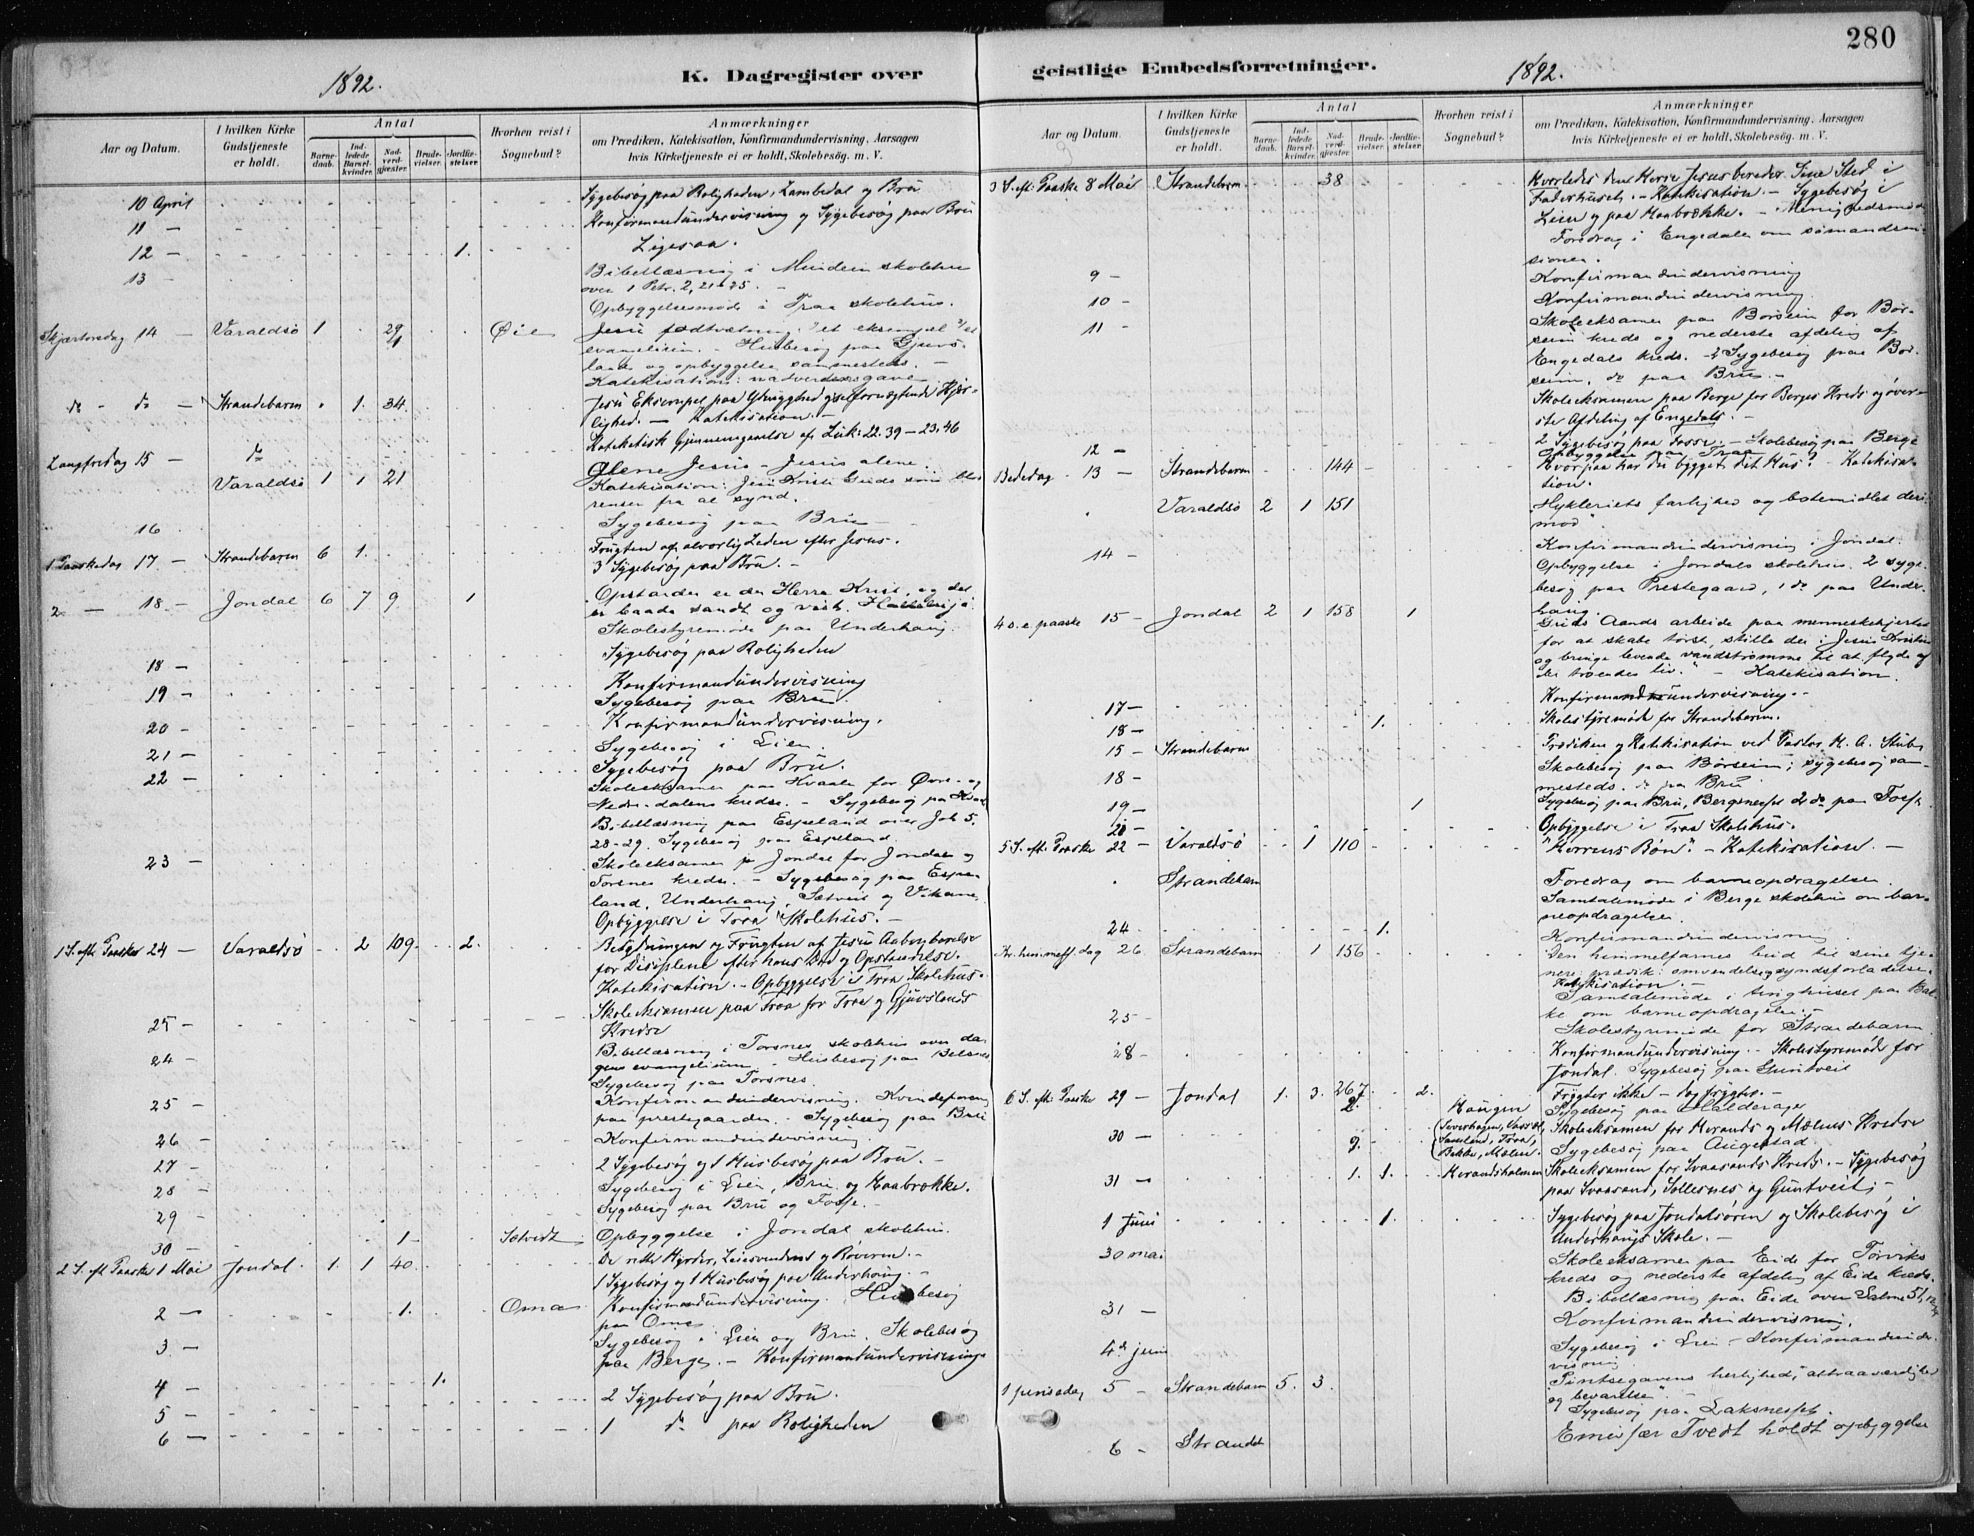 280
1892.
K. Dagregister over
geistlige Embedsforretninger.
1892.
Aar og Datum.
I hvilken Kirke Gudstjeneste er holdt.
Antal
Barnedaab.
Indledede Barselkvinder.
Nadverdgjester.
Brudevielser.
Jordfæstelser.
Hvorhen reist i Sognebud?
Anmærkninger
om Prædiken, Katekisation, Konfirmandundervisning, Aarsagen
hvis Kirketjeneste ei er holdt, Skolebesög. m. V.
10 April Sygebesøg paa Roligheden, Lambedal og Bru
11 — Konfirmandundervisning og Sygebesøg paa Bru
12 — 1. Ligesaa.
13 — Bibellæsning i Mundeim skolehus
over 1 Petr. 2, 21-25.
Opbyggelsesmøde i Traa skolehus.
Skjærtorsdag 14 — Varaldsö 1 29 Øie Jesu fodtvætning: et eksempel
evangelium. — Husbesøg paa
og opbyggelse sammesteds. —
Katekisation: nadverdensgaven.
do - do — Strandebarm 1. 34 Jesu Eksempel paa Ydmyghed og selvfornegtende Kjær-
lighed. — Katekisation. —
Langfredag 15 — do Kateketisk Gjennemgaaelse af Luk. 22.39 — 23.46
Varaldsö 1 1 21 Alene Jesus — Jesus alene.
Katekisation: Jesu Kristi Guds søns blod
renser fra al synd.
16 Sygebesøg paa Bru
1 Paaskedag 17 — Strandebarm 6 1. Frugten af alvorlig Leden efter Jesus.
3 Sygebesøg paa Bru. —
2 — 18. — Jondal 6 7 9 1 Opstanden er den Herre Krist, og det
er baade sandt og vist.
Skolestyremøde paa Underhaug.
18 — Sygebesøg paa Roligheden
19 — Konfirmandundervisning
Sygebesøg paa Bru.
20 — Konfirmandundervisning.
21 — Sygebesøg i Lien.
22 — Sygebesøg paa Bru.
Skoleeksamen paa Kvaale for Øvre- og
Nedre-dalens kredse. — Sygebesøg paa
Bibellæsning paa Espeland over Joh 5.
28-29. Sygebesøg paa Espeland
23 — Skoleeksamen p. Jondal for Jondals og
Torsnes kreds. — Sygebesøg paa Espe-
land, Underhaug, Sætveit og Vikane.
Opbyggelse i Traa Skolehus. —
1 S. eft. Paaske 24 — Varaldsö 2 109 2. Betydningen og Frugten af Jesu Aabenbarelse
for Disiplene efter hans Død og Opstandelse.
Katekisation. — Opbyggelse i Traa Skolehus.
25 — Skoleeksamen paa Traa for Traa og Gjuvslands
Kredse
24 — Bibellæsning i Torsnes skolehus over da-
gens evangelium. Husbesøg paa Belsnes
Sygebesøg paa Torsnes.
25 — Konfirmandundervisning. Kvindeforening
paa prestegaarden. Sygebesøg paa Bru
26 — Konfirmandundervisning
27 — 2 Sygebesøg og 1 Husbesøg paa Bru. —
28 — Sygebesøg i Lien, Bru og Haabrække.
29 — Sygebesøg paa Bru og Fosse. —
30 — 1 Sætvedt Opbyggelse i Jondal skolehus.
2 S. eft Paaske 1 Mai Jondal. 1. 1 40 De rette Hyrder, Leiesvendene og Røveren. —
1 Sygebesøg og 1 Husbesøg paa Underhaug. —
2 — 1. Oma Konfirmandundervisning. Husbesøg
paa Oma
3 — Sygebesøg i Lien og Bru. Skolebesøg
paa Berge. — Konfirmandundervisning
4 — 1. 2 Sygebesøg paa Bru.
5 — 1 do paa Roligheden
6 —
Aar og Datum.
I hvilken Kirke Gudstjeneste er holdt.
Antal
Barnedaab.
Indledede Barselkvinder.
Nadverdgjester.
Brudevielser.
Jordfæstelser.
Hvorhen reist i Sognebud?
Anmærkninger
om Prædiken, Katekisation, Konfirmandundervisning, Aarsagen
hvis Kirketjeneste ei er holdt, Skolebesög. m. V.
3 S. eft. Paaske 8 Mai Strandebarm 38 Hvorledes den Herre Jesus bereder Sine Sted i
Faderhuset. — Katekisation. — Sygebesøg i
Lien og paa Haabrække. — Menighedsmøde
Foredrag i Engedalen om sømandsmis-
sionen.
9 — Konfirmandundervisning
10 — Konfirmandundervisning.
11 — Skoleeksamen paa Børseim for Bør-
seim kreds og nederste afdeling af
Engedals kreds. Sygebesøg paa Bør-
seim, do paa Bru. —
Skoleeksamen paa Berge for Berges Kreds og øver-
ste Afdeling af Engedals. —
12 — 2 Sygebesøg paa Fosse. — Skolebesøg paa Berge
Opbyggelse paa Traa
Bededag 13 — Strandebarm 144 Hvorpaa har du bygget dit Hus? — Katekisa-
tion.
Varaldsö 2 1 151 "Hykleriets farlighed og botemidlet deri-
mod".
14 — Konfirmandundervisning i Jondal.
Opbyggelse i Jondals skolehus. 2 syge-
besøg paa Prestegaard, 1 do paa Under-
haug.
4 s. e. paaske 15 — Jondal 2 1 158 1 Guds Aands arbeide paa menneskehjertet
for at skabe tørst, stille den i Jesus Kristus
og bringe levende vandstrømme til at flyde af
de troendes liv." — Katekisation.
17 — Konfirmandundervisning. —
18 — 1. Skolestyremøde for Strandebarm.
15 — Strandebarm Prædiken og Katekisation ved Pastor K. A. Stub.
18 — Skolebesøg paa Børseim; sygebesøg sam-
mesteds. do paa Bru
19 — 1 Sygebesøg paa Bru, Bergsnesset 2 do paa Fosse
20 — Opbyggelse i Traa Skolehus.
5 S. eft. Paaske 22 — Varaldsö 1 110 "Herrens Bøn". — Katekisation. —
Strandebarm Foredrag om barneopdragelsen
Samtalemøde i Berge skolehus om bar-
neopdragelsen.
24 — 1. Konfirmandundervisning
Kr. himmelf. dag 26 Strandebarm 1 156 Den himmelfarnes bud til sine tje-
nere: prædik omvendelse og syndsforladelse.
Katekisation. —
25 — Samtalemøde i tinghuset paa Bak-
ke om barneopdragelse. —
Skolestyremøde for Strandebarm
28 — Konfirmandundervisning — Skolestyremøde for
Jondal. Sygebesøg paa Guntveit
6 S. eft. Paaske 29 — Jondal 1. 3. 267 2. Frygter ikke — og frygter. —
2. Haugen Sygebesøg paa Halderaker
30 — 9. Skoleeksamen for Herands og Mælens Kredse
Samland, Traa, Bakke, Mælen. Sygebesøg paa Augestad
31 — 1. 1. Herandsholmen Skoleeksamen for Svaasands Kreds. — Sygebesøg
paa Svaasand, Solesnes og Guntveit, —
1 Juni 1. Sygebesøg paa Jondalsøren og Skolebesøg i
Underhaugs Skole. —
30 mai Skoleeksamen paa Eide for Tørviks
kreds og nederste afdeling af Eide kreds.
Bibellæsning paa Eide over Salme 51,
31 — Konfirmandundervisning.
4de juni Sygebesøg i Lien — Konfirmandunder-
visning
1 pinsedag 5 — Strandebarm 5. 3. Pintsegavens herlighed, attraaværdighed
og bevarelse". —
Sygebesøg paa Laksnesset.
6 — Strandeb Emissær Tvedt holdt opbyggelse